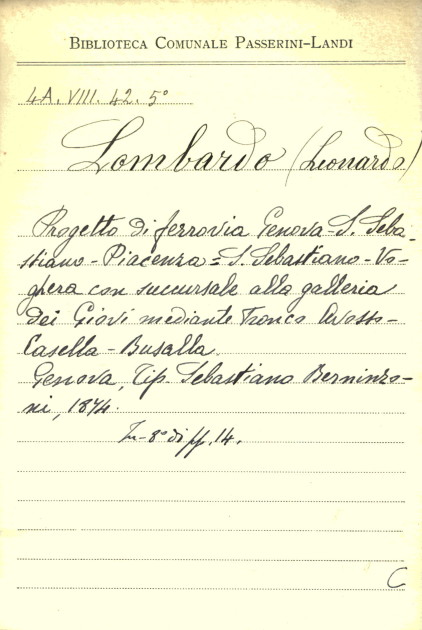 BIBLIOTECA COMUNALE PASSERINI-LANDI
4A. VIII. 42. 5°
Lombardo (Leonardo)
Progetto di ferrovia Genova-S. Seba-
stiano-Piacenza = S. Sebastiano-Vo-
ghera con succursale alla galleria
dei Giovi mediante tronco Avosso-
Casella-Busalla.
Genova, Tip. Sebastiano Berninzo-
ni, 1874.
In-8° di pp. 14.
C